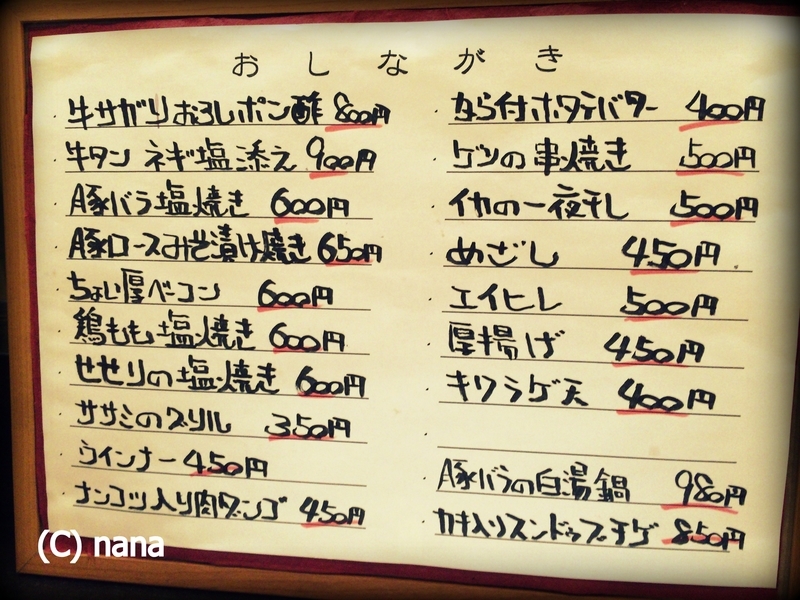 おしながき
牛サガリおろしポン酢 800円
牛タン ネギ塩添え 900円
豚バラ塩焼き 600円
豚ロースみそ漬け焼き 650円
ちょい厚ベーコン 600円
鶏もも塩焼き 600円
せせりの塩焼き 600円
ササミのグリル 350円
ウインナー 450円
ナンコツ入り肉ダンゴ 450円
から付ホタテバター 400円
ゲソの串焼き 500円
イカの一夜干し 500円
めざし 450円
エイヒレ 500円
厚揚げ 450円
キクラゲ天 400円
豚バラの白湯鍋 980円
カキ入りスンドゥブチゲ 850円
(C) nana